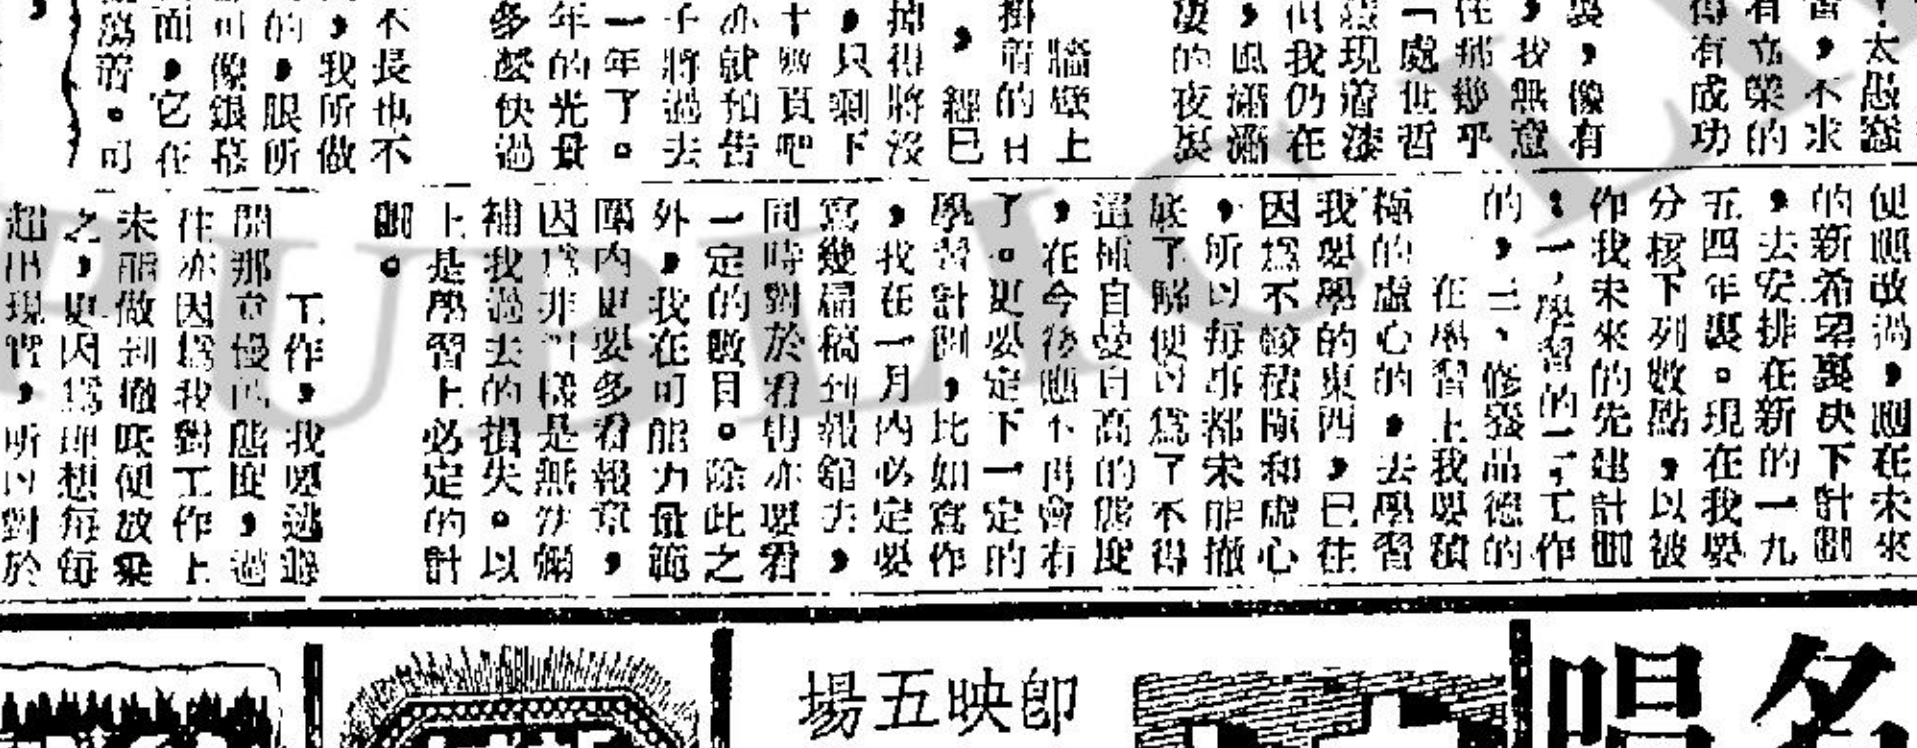 ！太愚蠢
會，不求
有立業的
得有成功
裏，像有
，我無意
在那幾乎
「處世哲
我現着漆
但我仍在
，風瀟瀟
凄的夜裏
牆壁上
掛着的日
，經已
掉得將沒
，只剩下
十數頁吧
亦就預告
子將過去
一年了。
年的光景
多麼快過
不長也不
，我所做
的，眼所
可像銀幕
面，它在
着。可
便應改過，應在未來
的新希望裏決下計劃
，去安排在新的一九
五四年裏。現在我要
分核下列數點，以被
作我未來的先建計劃
：一，學習的二，工作
的，三、修養品德的
在學習上我要積
極的虛心的，去學習
我要學的東西，已往
因為不夠積極和虛心
，所以每事都未能徹
底了解便以為了不得
這種自曼自高的態度
，在今後應不再會有
了。更要定下一定的
學習計劃，比如寫作
，我在一月內必定要
寫幾篇稿到報館去，
同時對於看書亦要看
一定的數目。除此之
外，我在可能力量範
圍內更要多看報章，
因為非叫樣是無法彌
補我過去的損失。以
上是學習上必定的計
劃。
工作，我要逃避
開那立慢的態度，過
往亦因為我對工作上
未能做到徹底便放棄
之，更因為即想每每
超出現實，所以對於
名
唱
即映五場
PUBLIC L